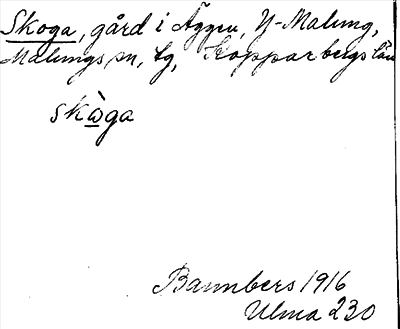 Skoga, gård i Äggen, Y-Malung,
Malungs sn, tg, Kopparbergs län
skὼga
Bannbers 1916
Ulma 230